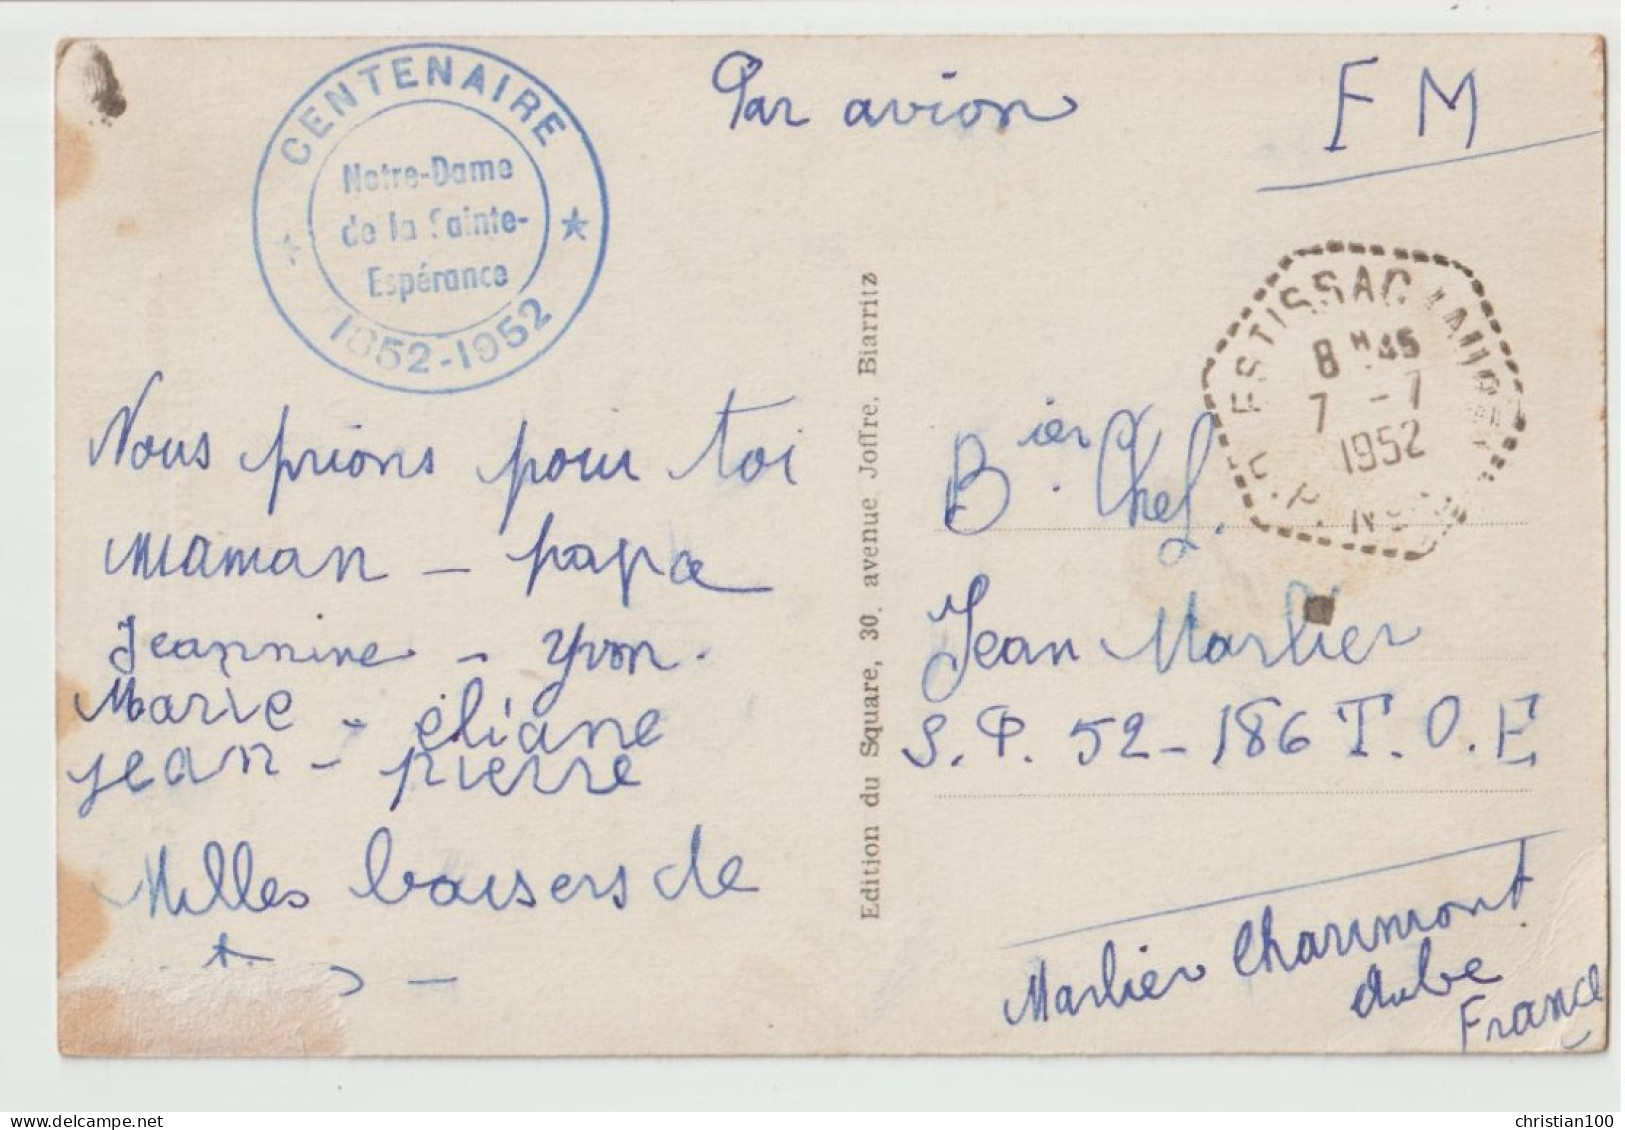 CENTENAIRE
Notre-Dame
de la Sainte-
Espérance
1852-1952
Par avion
F M
ESTISSAC
8 H 45
7 - 7
1952
Nous prions pour toi
Maman - papa
Jeannine - Yvon.
Marie - éliane
jean - pierre
Milles baisers de
Edition du Square, 30, avenue Joffre, Biarritz
Bier. Chef.
Jean Marlier
S. P. 52-186 T. O. E
Marlier Charmont
Aube
France
delcampe.net
christian100